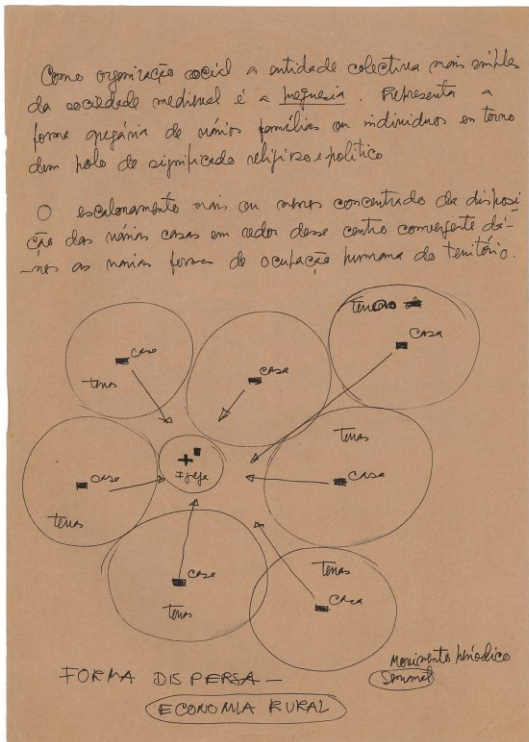 Como organização social a entidade colectiva mais simples
da sociedade medieval é a freguesia. Representa a
forma gregária de vários famílias ou individuos em torno
dum polo de significado religioso e politico
O escalonamento mais ou menos concentrado da disposi
ção das várias casas em redor desse centro convergente dá-
-nos as várias formas de ocupação humana do território.
Terras
casa
casa
casa
terras
Terras
casa
casa
Igreja
terras
Terras
casa
casa
terras
Movimento periódico
Semanal
FORMA DISPERSA —
ECONOMIA RURAL